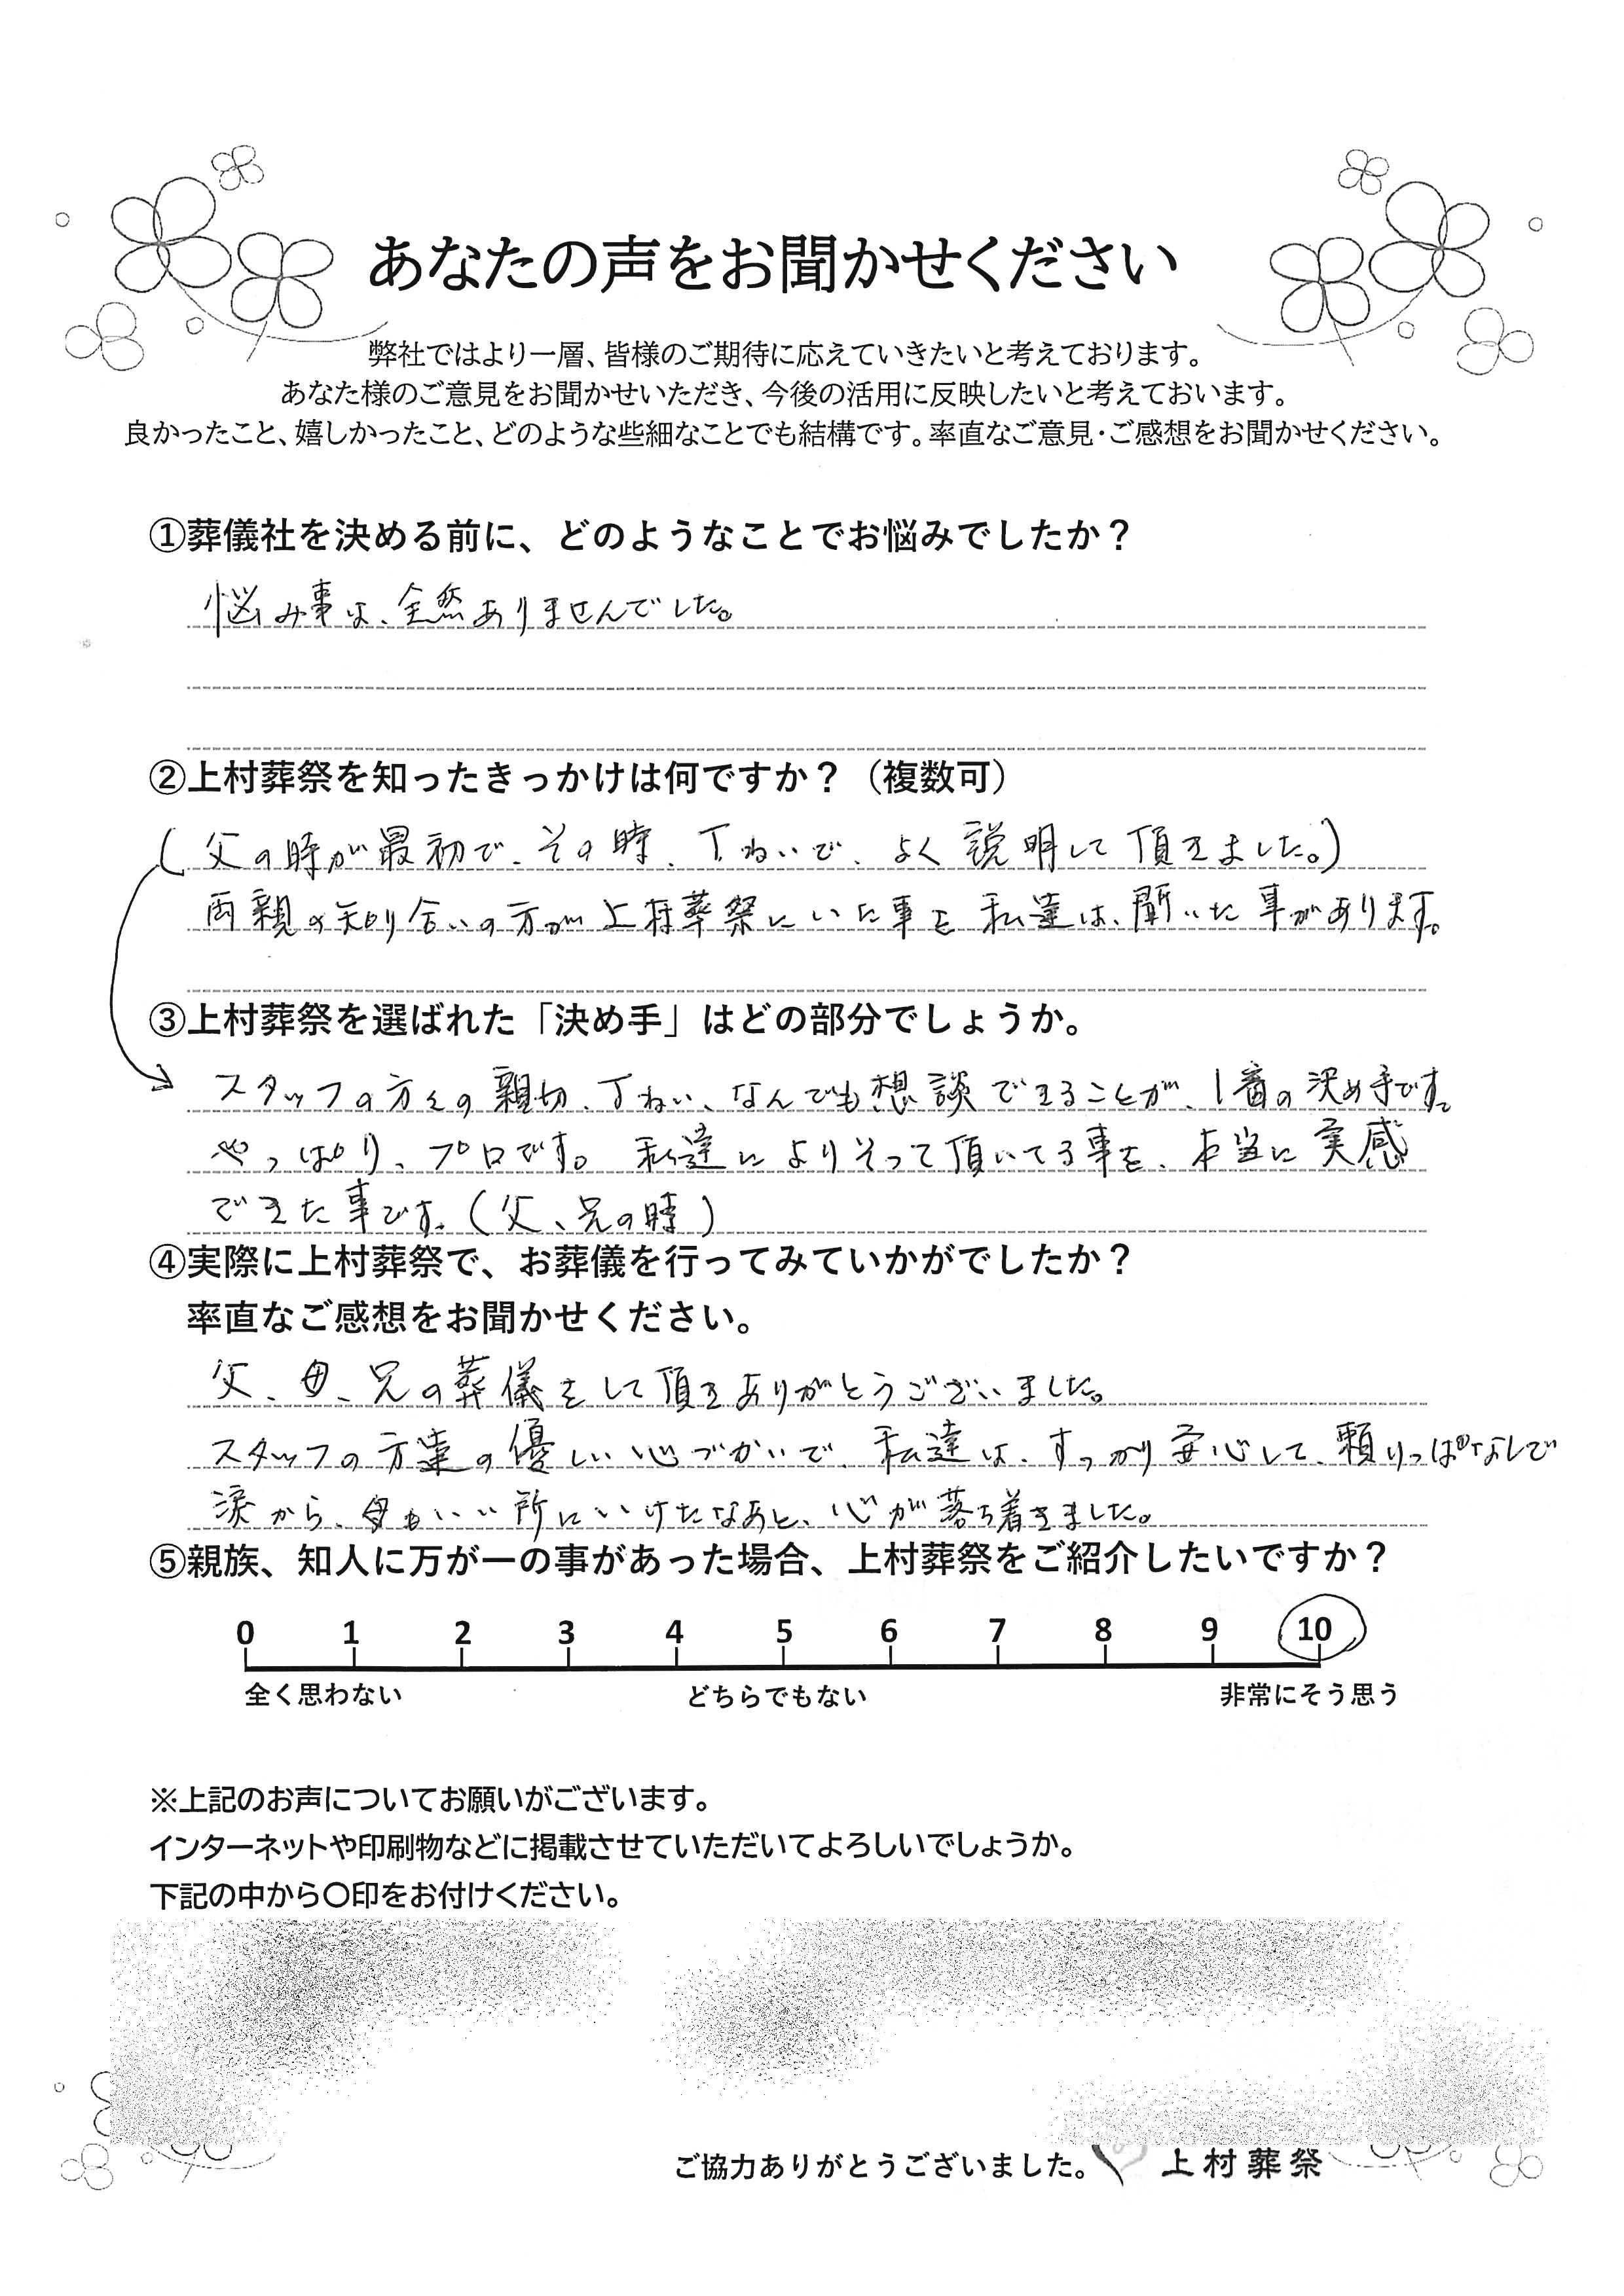 あなたの声をお聞かせください
弊社ではより一層、皆様のご期待に応えていきたいと考えております。
あなた様のご意見をお聞かせいただき、今後の活用に反映したいと考えておいます。
良かったこと、嬉しかったこと、どのような些細なことでも結構です。率直なご意見・ご感想をお聞かせください。
①葬儀社を決める前に、どのようなことでお悩みでしたか？
悩み事は、全然ありませんでした。
②上村葬祭を知ったきっかけは何ですか？（複数可）
(父の時が最初で、その時、丁ねいで、よく説明して頂きました。)
両親の知り合いの方が上村葬祭にいた事を私達は、聞いた事があります。
③上村葬祭を選ばれた「決め手」はどの部分でしょうか。
スタッフの方々の親切、丁ねい、なんでも想談できることが、1番の決め手です。
やっぱり、プロです。私達によりそって頂いてる事を、本当に実感
できた事です。(父、兄の時)
④実際に上村葬祭で、お葬儀を行ってみていかがでしたか？
率直なご感想をお聞かせください。
父、母、兄の葬儀をして頂きありがとうございました。
スタッフの方達の優しい心づかいで、私達は、すっかり安心して、頼りっぱなしで
涙から、母もいい所にいけたなあと、心が落ち着きました。
⑤親族、知人に万が一の事があった場合、上村葬祭をご紹介したいですか？
0 1 2 3 4 5 6 7 8 9 10
全く思わない どちらでもない 非常にそう思う
※上記のお声についてお願いがございます。
インターネットや印刷物などに掲載させていただいてよろしいでしょうか。
下記の中から〇印をお付けください。
ご協力ありがとうございました。 上村葬祭